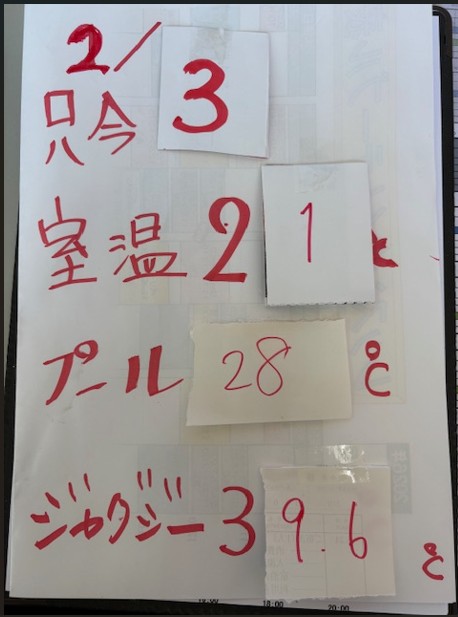 2/3
只今
室温 21℃
プール 28℃
ジャグジー 39.6℃
18:00 20:00